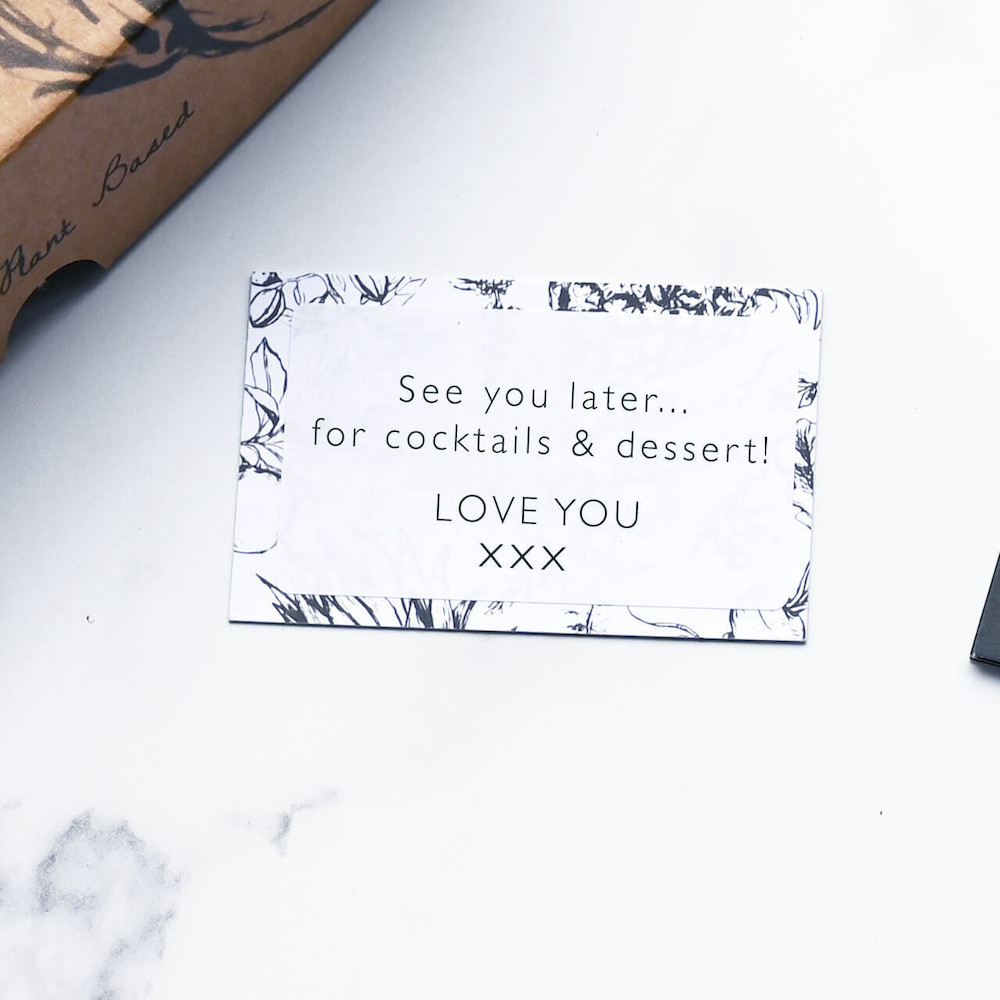 Plant Based
See you later...
for cocktails & dessert!
LOVE YOU
XXX